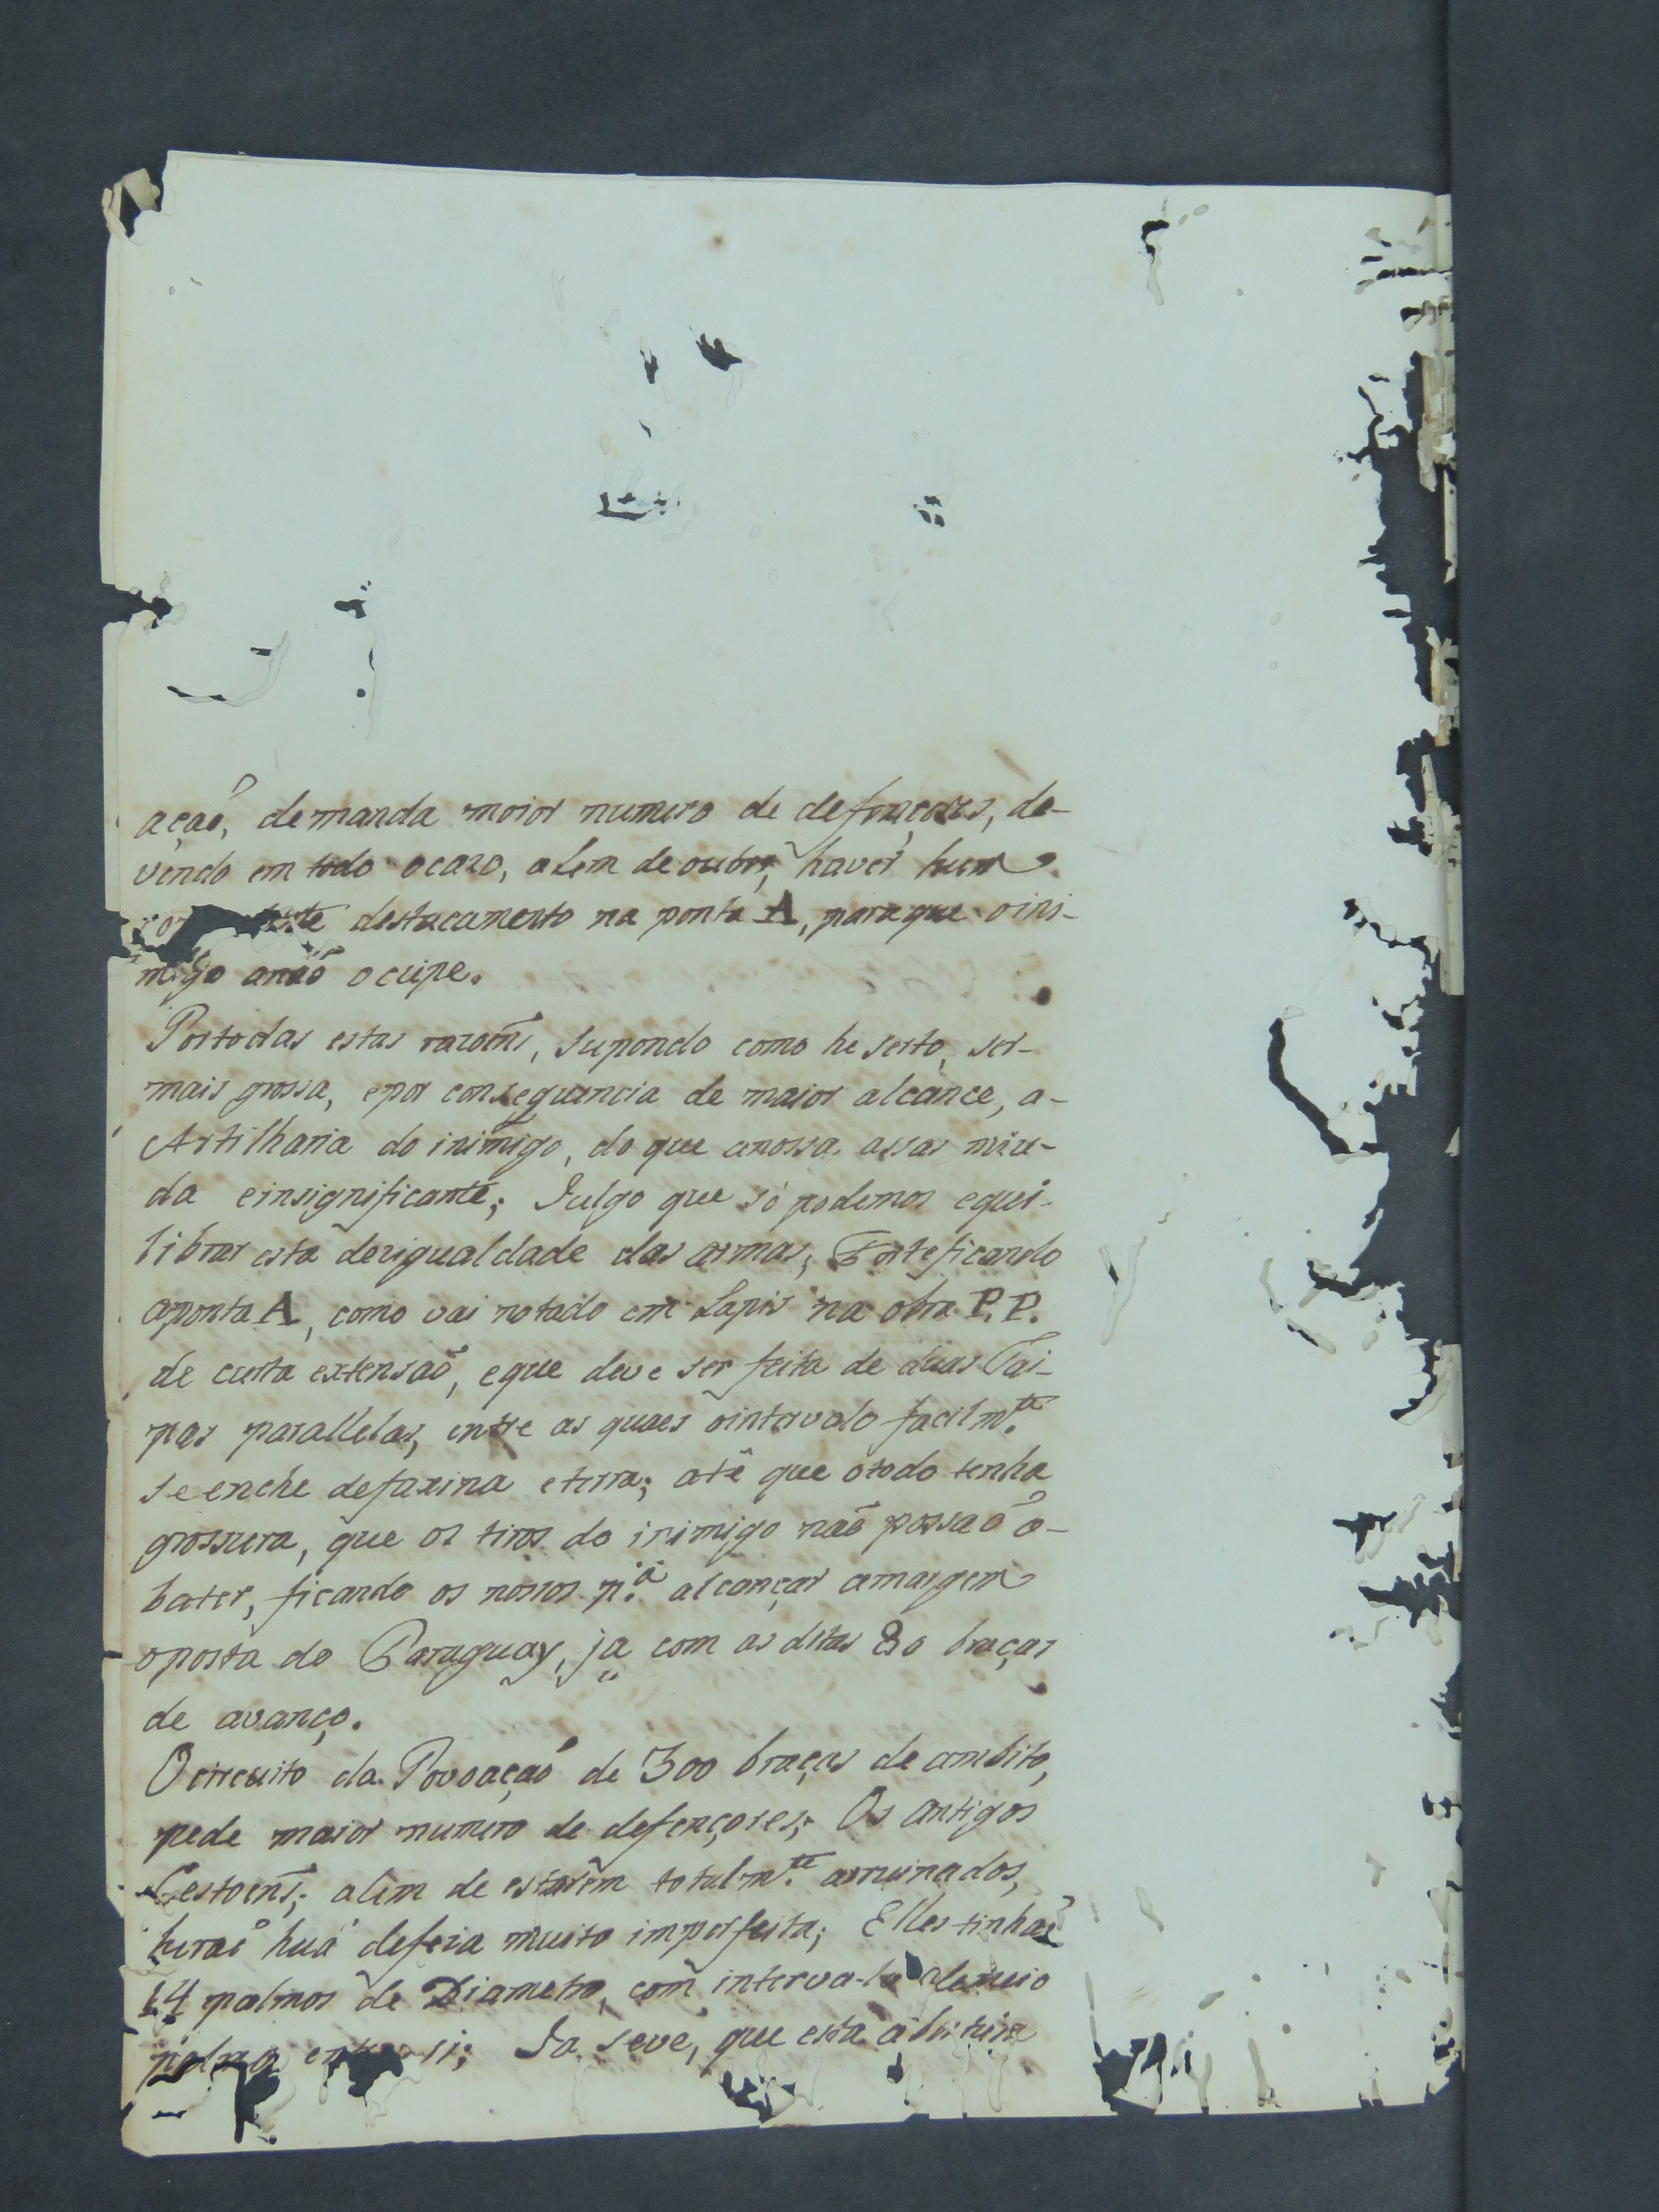 açaõ, demanda moior numero de defençores, de-
vendo em todo ocazo, alem de outro, haver hum
destacamento na ponta A, paraque oini-
migo anaõ ocupe.
Portodas estas razoens, Supondo como he serto, ser-
mais grossa, epor consequencia de maior alcance, a-
Artilharia do inimigo, do que anossa assas miu-
da einsignificante; Julgo que só podemos equi-
librar esta dezigualdade das armas; Forteficando
aponta A, como vai notado em Lapis na obra P. P.
de curta extensaõ, eque deve ser feita de duas Tai-
pas parallelas, entre as quaes ointervalo facilm.te
se enche defaxina eterra; até que otodo tenha
grossura, que os tiros do inimigo naõ possaõ a-
bater, ficando os nossos p.a alcançar amargem
oposta do Paraguay, ja com as ditas 80 braças
de avanço.
Ocircuito da Povoaçaõ de 300 braças de ambito,
pede maior numero de defençores; Os antigos
Cestoens; alem de estarem totalm.te arruinados,
heraõ huã defeza muito imperfeita; Elles tinhaõ
14 palmos de Diametro, com intervalo demeio
palmo entre si; Ja seve, que esta abertura